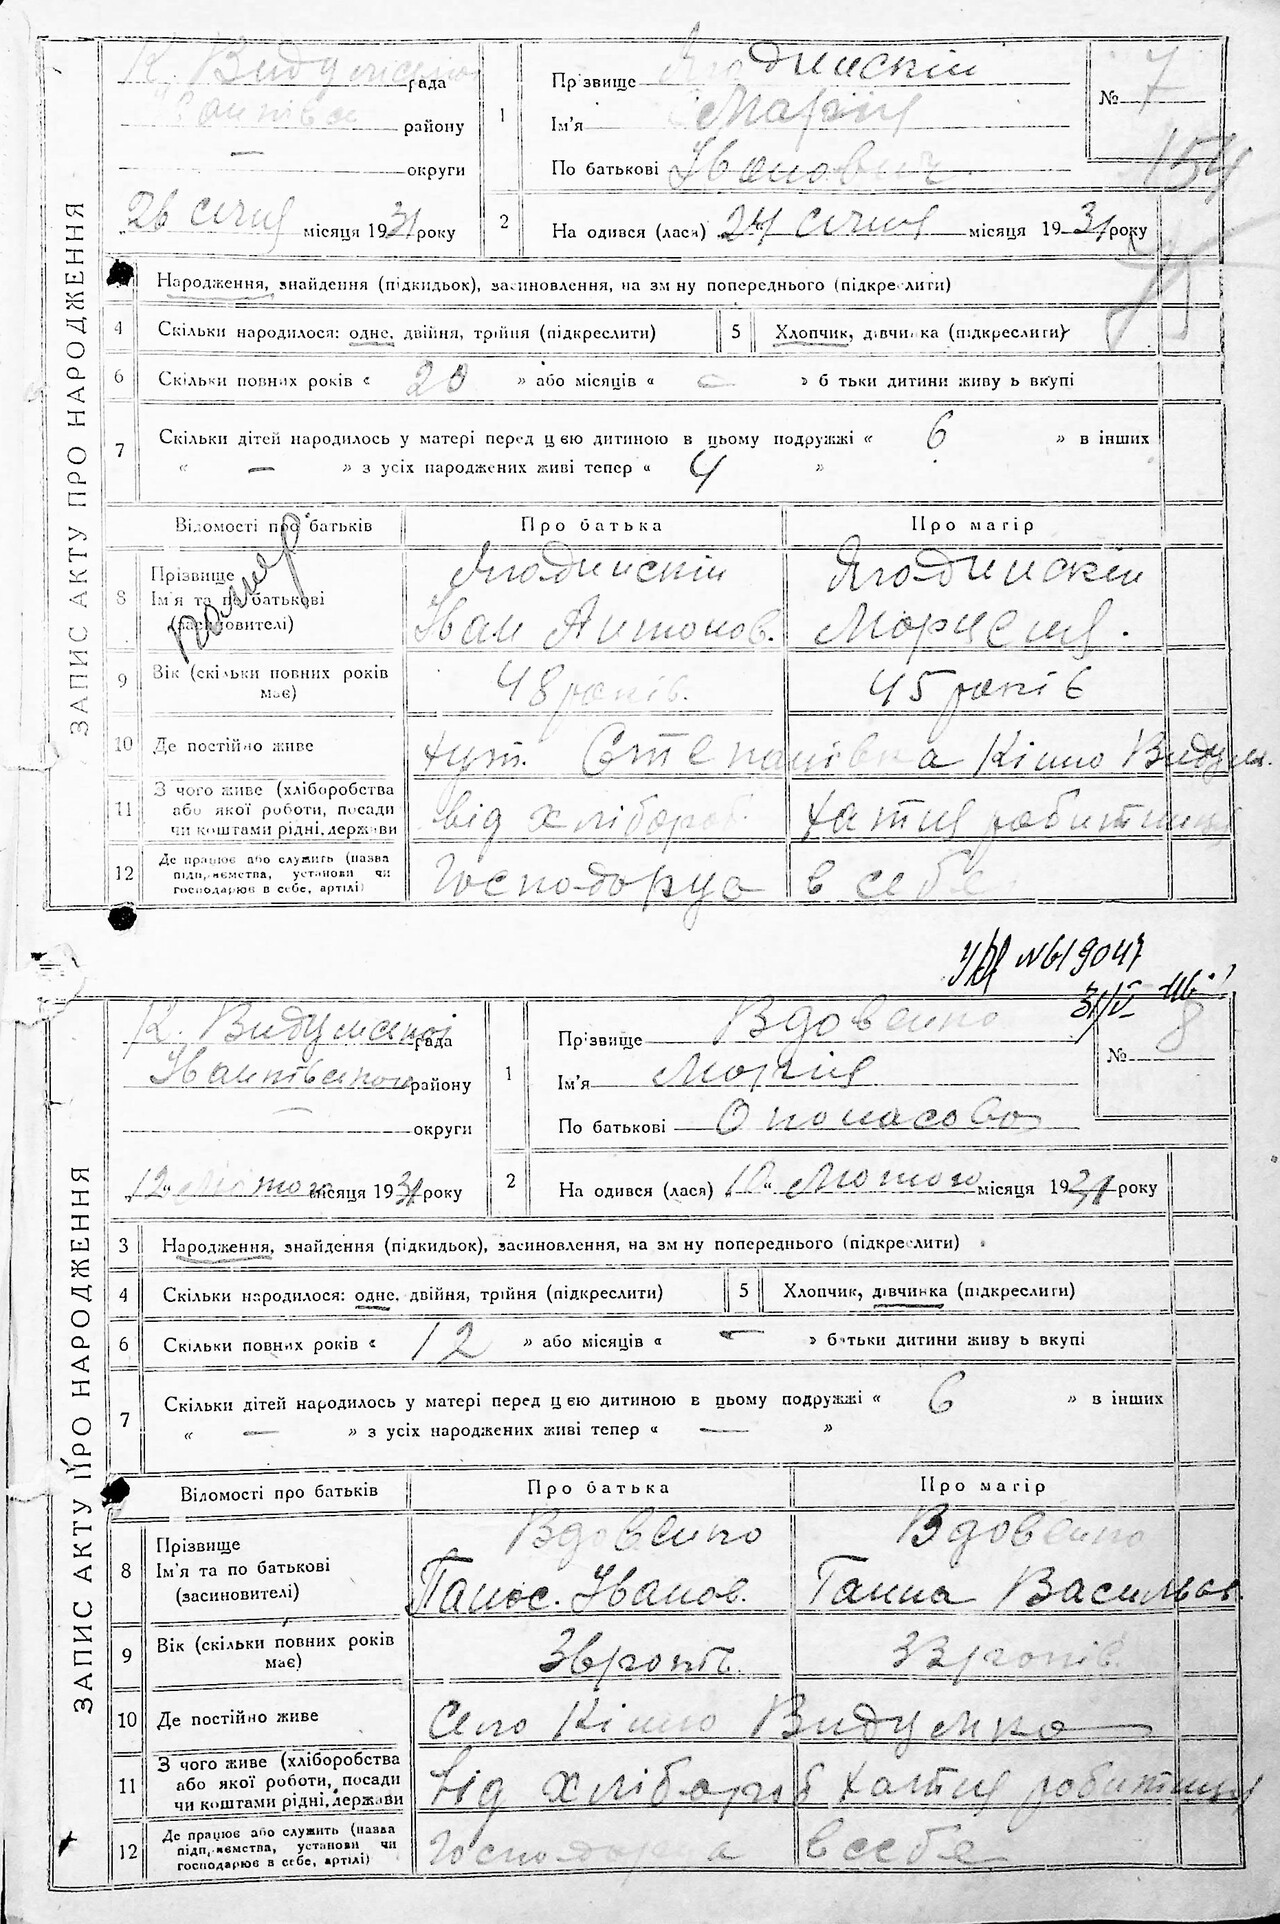 ЗАПИС АКТУ ПРО НАРОДЖЕННЯ
К. Видумська рада
району
— округи
26 січня місяця 1931 року
1 Прізвище Ягодинскій
Ім'я Марян
По батькові Іванович
№ 7
154
2 Народився (лася) 24 січня місяця 1931 року
Народження, знайдення (підкидьок), засиновлення, на зміну попереднього (підкреслити)
4 Скільки народилося: одне, двійня, трійня (підкреслити) 5 Хлопчик, дівчинка (підкреслити)
6 Скільки повних років « 20 » або місяців « — » батьки дитини живуть вкупі
7 Скільки дітей народилось у матері перед цією дитиною в цьому подружжі « 6 » в інших
« — » з усіх народжених живі тепер « 4 »
Відомості про батьків Про батька Про матір
помер
8 Прізвище Ягодинскій Ягодинскій
Ім'я та по батькові Іван Антонов.
(засиновителі)
9 Вік (скільки повних років має) 48 років. 45 років
10 Де постійно живе хут. Степанівка Кішно Видумк.
11 З чого живе (хліборобства від хлібороб. хатня робітниця
або якої роботи, посади
чи коштами рідні, держави
12 Де працює або служить (назва Господарує в себе
підприємства, установи чи
господарює в себе, артілі)
№ 619047
31/V 46
ЗАПИС АКТУ ПРО НАРОДЖЕННЯ
К. Видумской рада
Іванківской району
— округи
12 Лютого місяця 1931 року
1 Прізвище Вдовенко
Ім'я Марія
По батькові Опонасова
№ 8
2 Народився (лася) 10 Лютого місяця 1931 року
3 Народження, знайдення (підкидьок), засиновлення, на зміну попереднього (підкреслити)
4 Скільки народилося: одне, двійня, трійня (підкреслити) 5 Хлопчик, дівчинка (підкреслити)
6 Скільки повних років « 12 » або місяців « — » батьки дитини живуть вкупі
7 Скільки дітей народилось у матері перед цією дитиною в цьому подружжі « 6 » в інших
« — » з усіх народжених живі тепер « — »
Відомості про батьків Про батька Про матір
8 Прізвище Вдовенко Вдовенко
Ім'я та по батькові Панас. Іванов. Ганна Васильов.
(засиновителі)
9 Вік (скільки повних років має) 36 років. 33 років.
10 Де постійно живе Село Кішно Видумка
11 З чого живе (хліборобства від хлібороб хатня робітниця
або якої роботи, посади
чи коштами рідні, держави
12 Де працює або служить (назва Господарує в себе
підприємства, установи чи
господарює в себе, артілі)